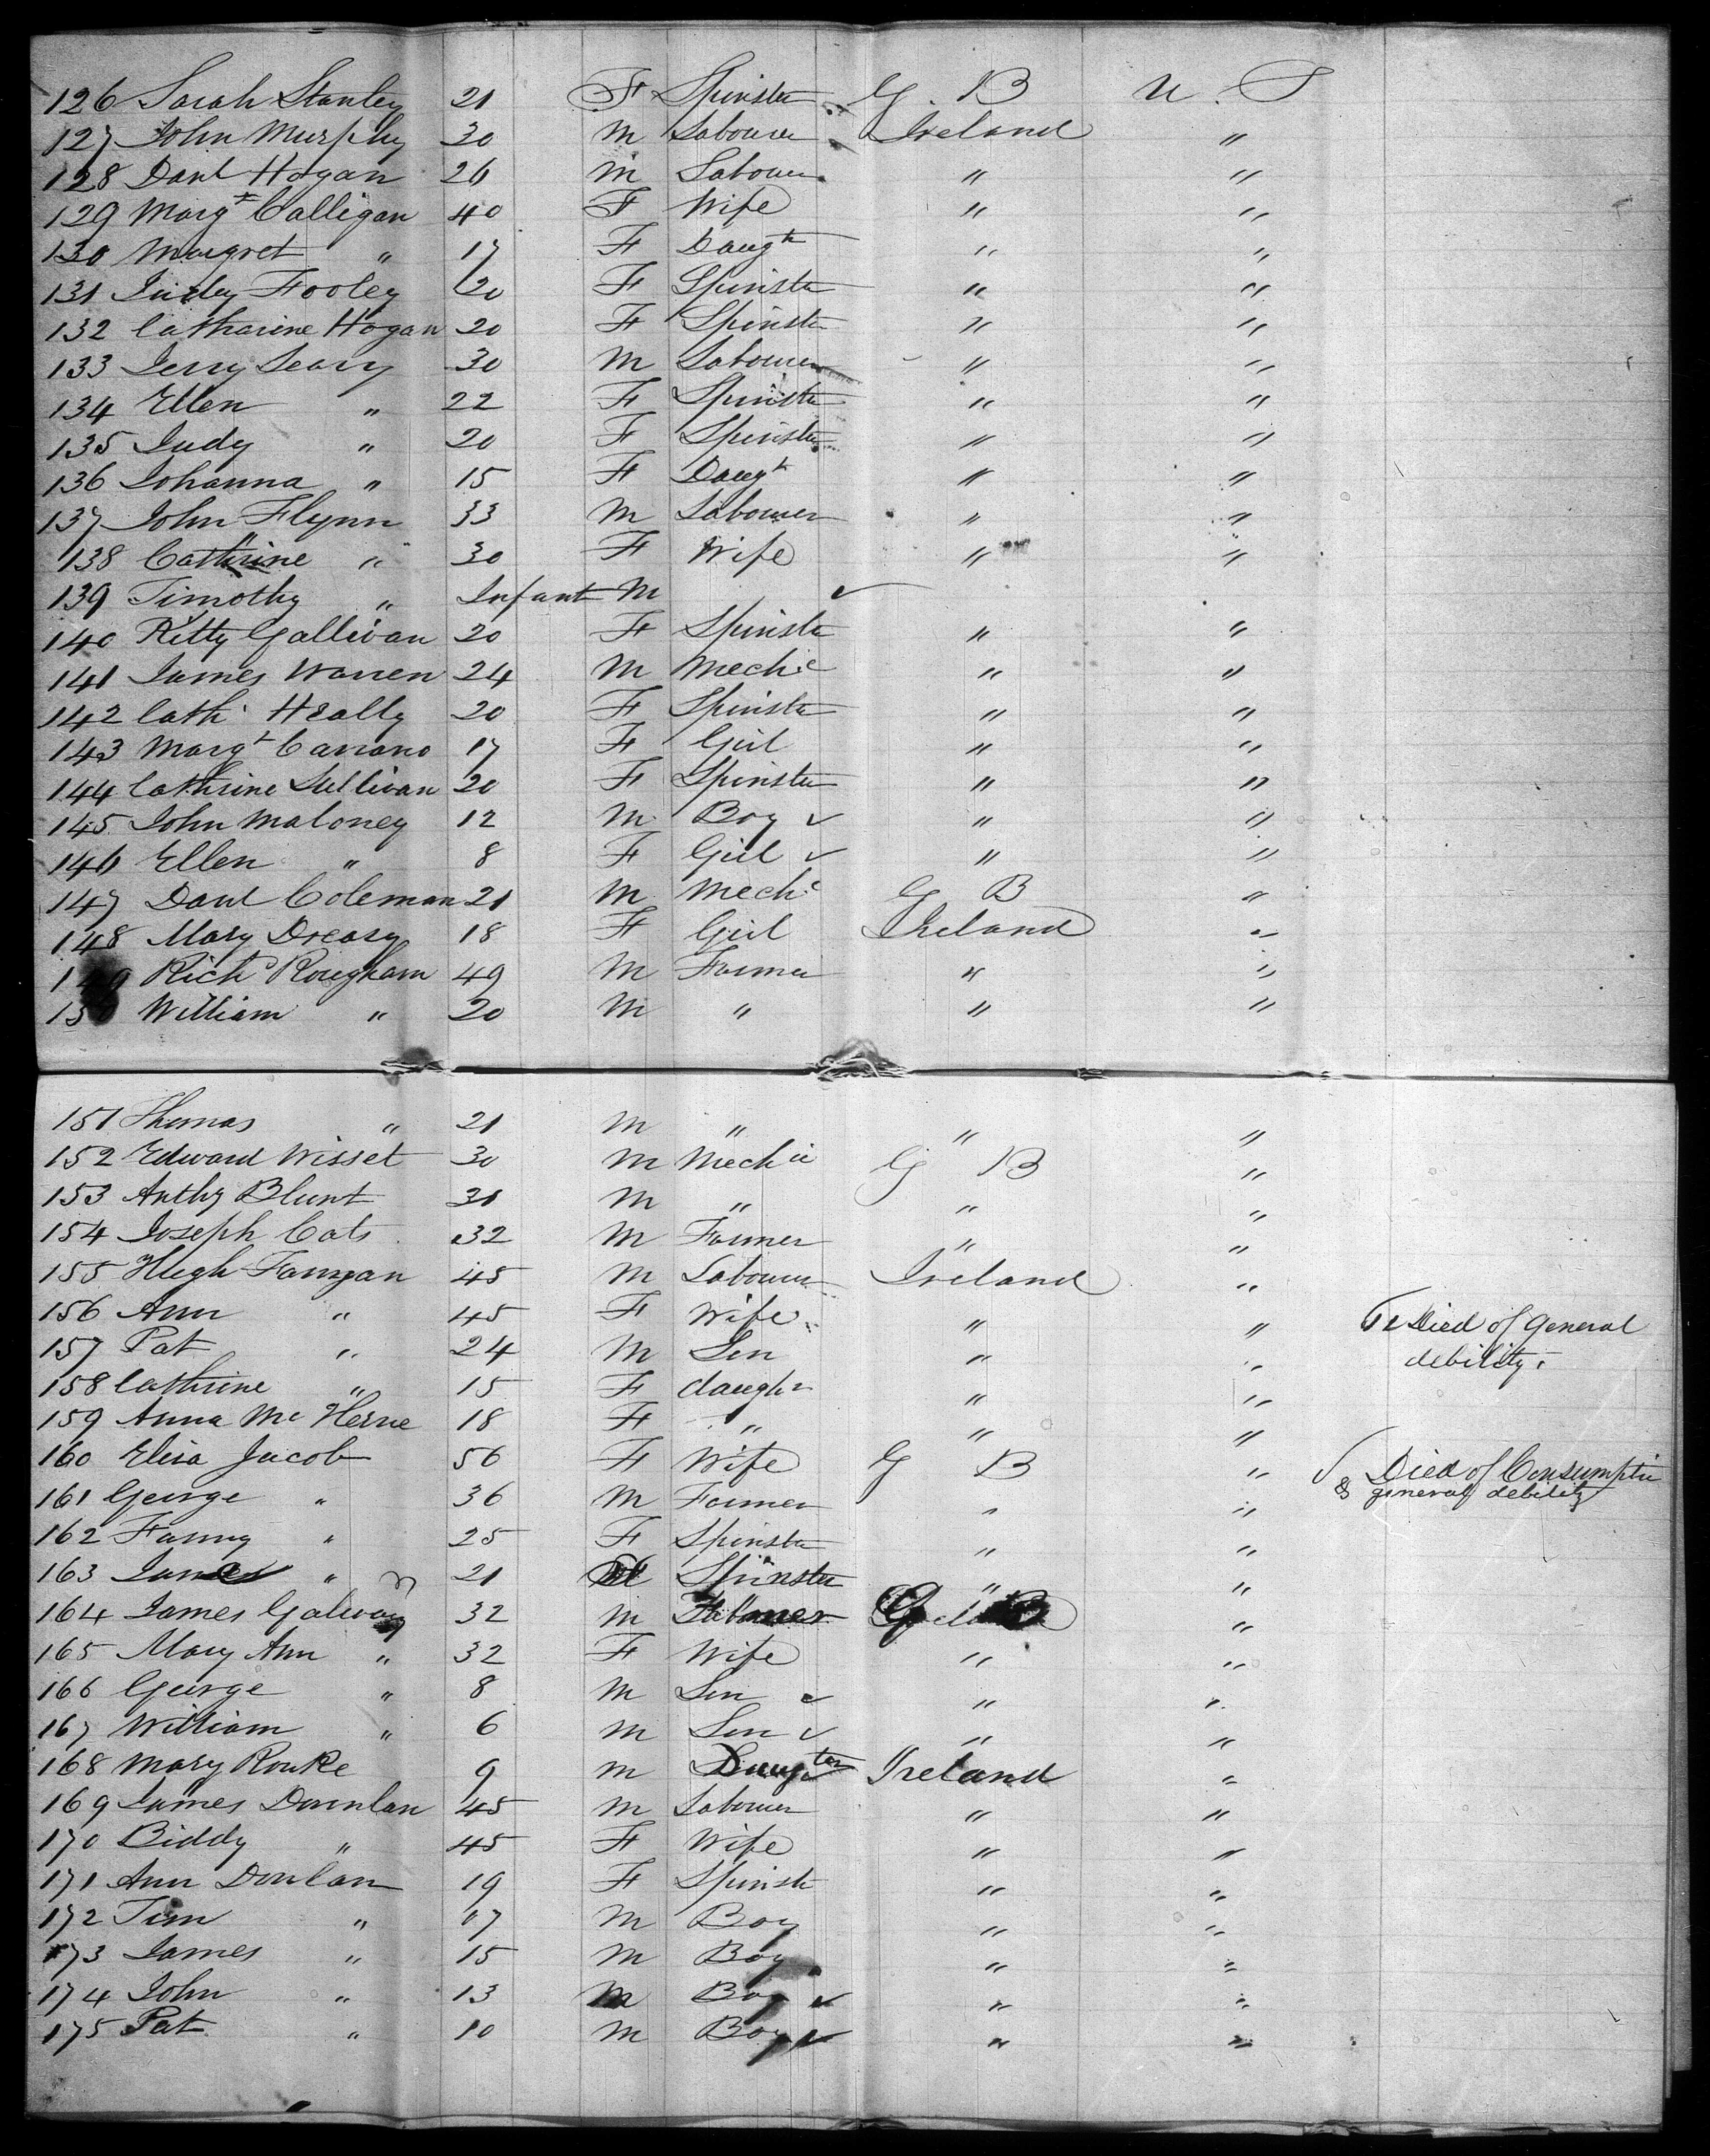 126 Sarah Stanley 21 F Spinster G. B U. S
127 John Murphy 30 M Labourer Ireland "
128 Danl Hogan 26 M Labourer " "
129 Margt Calligan 40 F Wife " "
130 Margret " 17 F Daugtr " "
131 Judy Fooley 20 F Spinster " "
132 Catharine Hogan 20 F Spinster " "
133 Jerry Leary 30 M Labourer " "
134 Ellen " 22 F Spinster " "
135 Judy " 20 F Spinster " "
136 Johanna " 15 F Daugt " "
137 John Flynn 33 M Labourer " "
138 Cathrine " 30 F Wife " "
139 Timothy " Infant M
140 Kitty Gallivan 20 F Spinster " "
141 James Warren 24 M Mechc " "
142 Cath Heally 20 F Spinster " "
143 Margt 17 F Girl " "
144 Cathrine Sullivan 20 F Spinster " "
145 John Maloney 12 M Boy " "
146 Ellen " 8 F Girl " "
147 Danl Coleman 21 M Mechc G B "
148 Mary Dreasy 18 F Girl Ireland "
149 Richd Rougham 49 M Farmer " "
150 William " 20 M " " "
151 Thomas " 21 M " " "
152 Edward Wisset 30 M Mechic G B "
153 Anthy Blunt 31 M " " "
154 Joseph Cats 32 M Farmer " "
155 Hugh 45 M Labourer Ireland "
156 Ann " 45 F Wife " " Died of General
157 Pat " 24 M Son " " debility.
158 Cathrine " 15 F daughr " "
159 Anna Mc Herne 18 F " " "
160 Elisa Jacob 56 F Wife G B " Died of Consumptio
161 George " 36 M Farmer " " & general debility
162 Fanny " 25 F Spinster " "
163 " 21 Spinster " "
164 James Galway 32 M "
165 Mary Ann " 32 F Wife " "
166 George " 8 M Son " "
167 William " 6 M Son " "
168 Mary Rourke 9 M Daugter Ireland "
169 James Dounlan 45 M Labourer " "
170 Biddy " 45 F Wife " "
171 Ann Donlan 19 F Spinstr " "
172 Tim " 17 M Boy " "
173 James " 15 M Boy " "
174 John " 13 M Boy " "
175 Pat " 10 M Boy " "